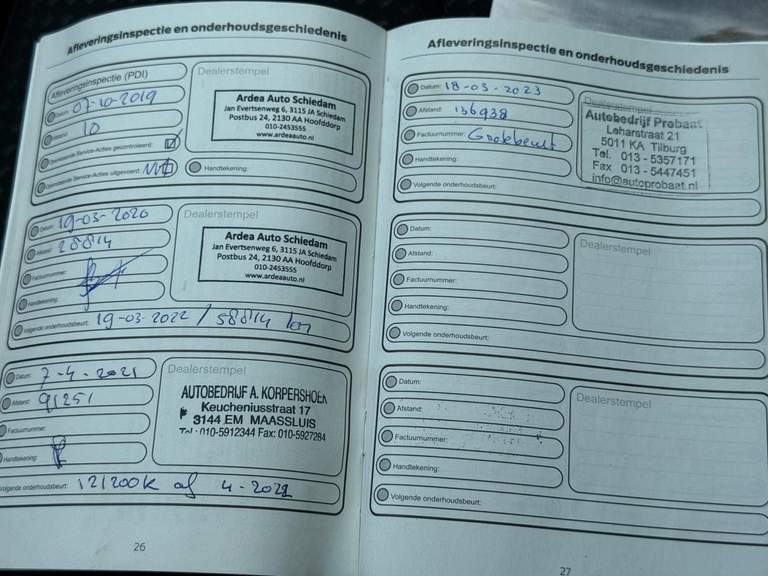 Afleveringsinspectie en onderhoudsgeschiedenis
Afleveringsinspectie (PDI)
Datum: 07-10-2019
Afstand: 10
Openstaande Service-Acties gecontroleerd:
Openstaande Service-Acties uitgevoerd:
Dealerstempel
Ardea Auto Schiedam
Jan Evertsenweg 6, 3115 JA Schiedam
Postbus 24, 2130 AA Hoofddorp
010-2453555
www.ardeaauto.nl
Handtekening:
Datum: 19-03-2020
Afstand: 28814
Factuurnummer:
Handtekening:
Volgende onderhoudsbeurt: 19-03-2022 / 58814 km
Dealerstempel
Ardea Auto Schiedam
Jan Evertsenweg 6, 3115 JA Schiedam
Postbus 24, 2130 AA Hoofddorp
010-2453555
www.ardeaauto.nl
Datum: 7-4-2021
Afstand: 91251
Factuurnummer:
Handtekening:
Volgende onderhoudsbeurt: 121200K of 4-2022
Dealerstempel
AUTOBEDRIJF A. KORPERSHOEK
Keucheniusstraat 17
3144 EM MAASSLUIS
Tel.: 010-5912344 Fax: 010-5927284
26
Afleveringsinspectie en onderhoudsgeschiedenis
Datum: 18-03-2023
Afstand: 136938
Factuurnummer: Grotebeurt
Handtekening:
Volgende onderhoudsbeurt:
Dealerstempel
Autobedrijf Probaat
Leharstraat 21
5011 KA Tilburg
Tel. 013-5357171
Fax 013-5447451
info@autoprobaat.nl
Datum:
Afstand:
Factuurnummer:
Handtekening:
Volgende onderhoudsbeurt:
Dealerstempel
Datum:
Afstand:
Factuurnummer:
Handtekening:
Volgende onderhoudsbeurt:
Dealerstempel
27